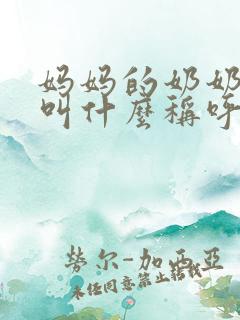 妈妈的奶奶
叫什麼稱呼
勞尔-加西亞
未经同意禁止转载